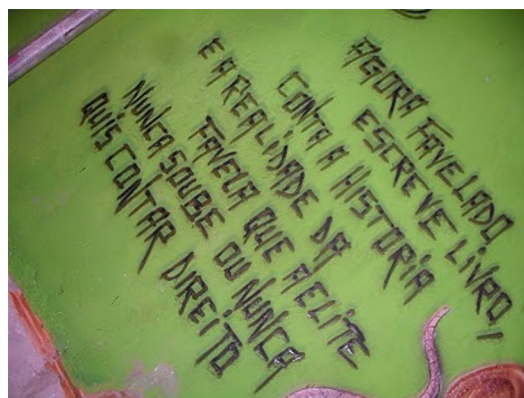 AGORA FAVELADO
ESCREVE LIVRO,
CONTA A HISTORIA
E A REALIDADE DA
FAVELA QUE A ELITE
NUNCA SOUBE OU NUNCA
QUIS CONTAR DIREITO